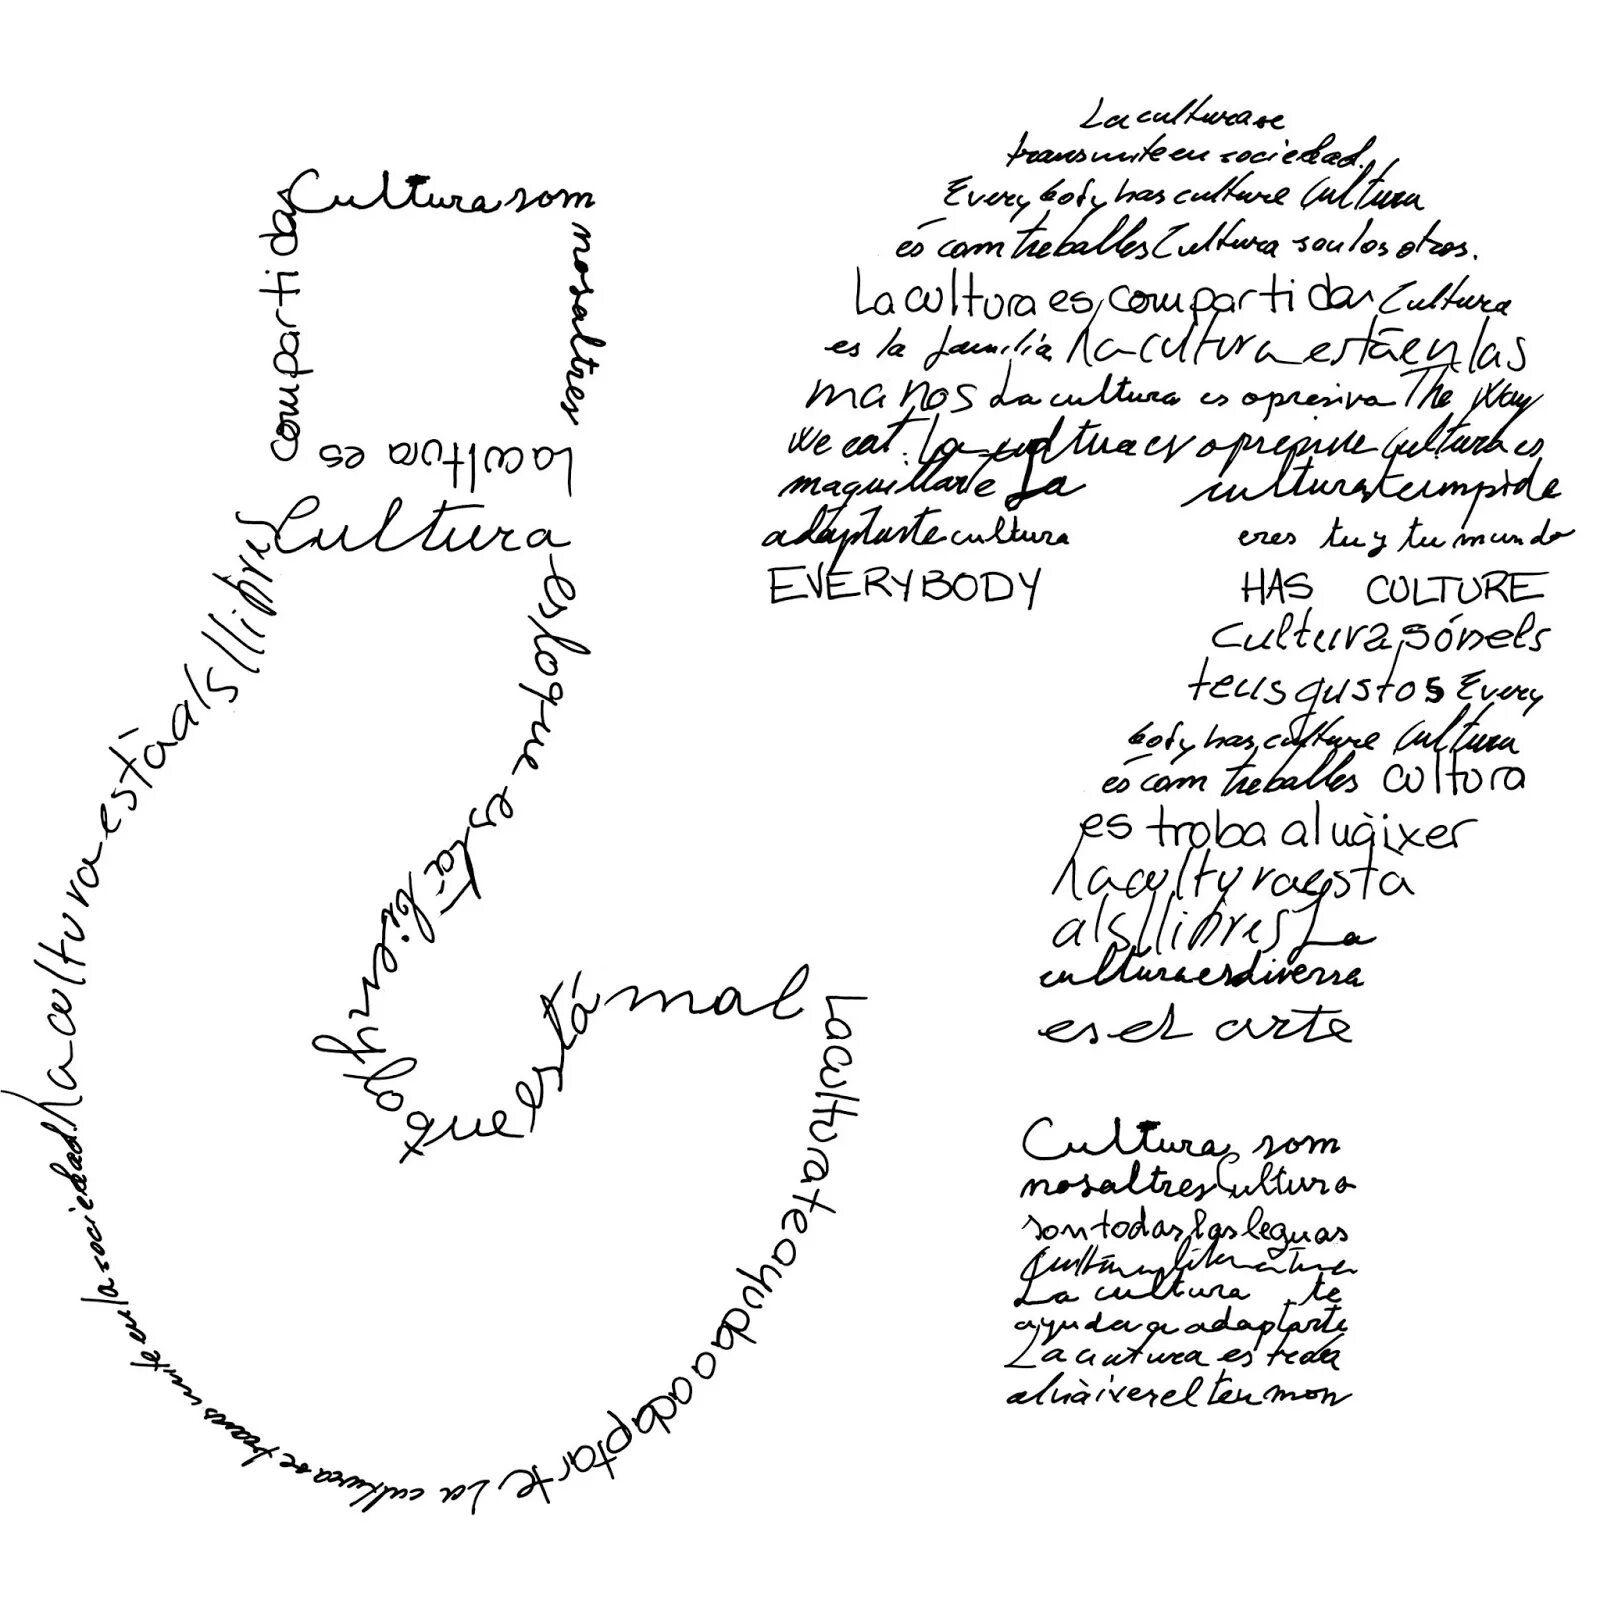 Cultura som
nosaltres
la cultura es
compartidas
Cultura
es lo que está bien y lo
que está mal
La cultura te ayuda a adaptarte
La cultura se transmite en la sociedad.
La cultura està als llibres
La cultura se
transmite en sociedad.
Everybody has culture Cultura
és com treballes Cultura son los otros.
La cultura es compartidas Cultura
es la familia La cultura está en las
manos La cultura es opresiva The way
we eat. La cultura es opresive Cultura es
maquillarte La cultura
adaptarte cultura eres tu y tu mundo
EVERYBODY HAS CULTURE
Cultura són els
teus gustos Every
body has culture Cultura
és com treballes cultura
es troba al uàixer
La cultura esta
als llibres La
cultura es diversa
es el arte
Cultura som
nosaltres Cultura
son todas las leguas
La cultura te
ayuda a adaptarte
La cutura es
el teu mon